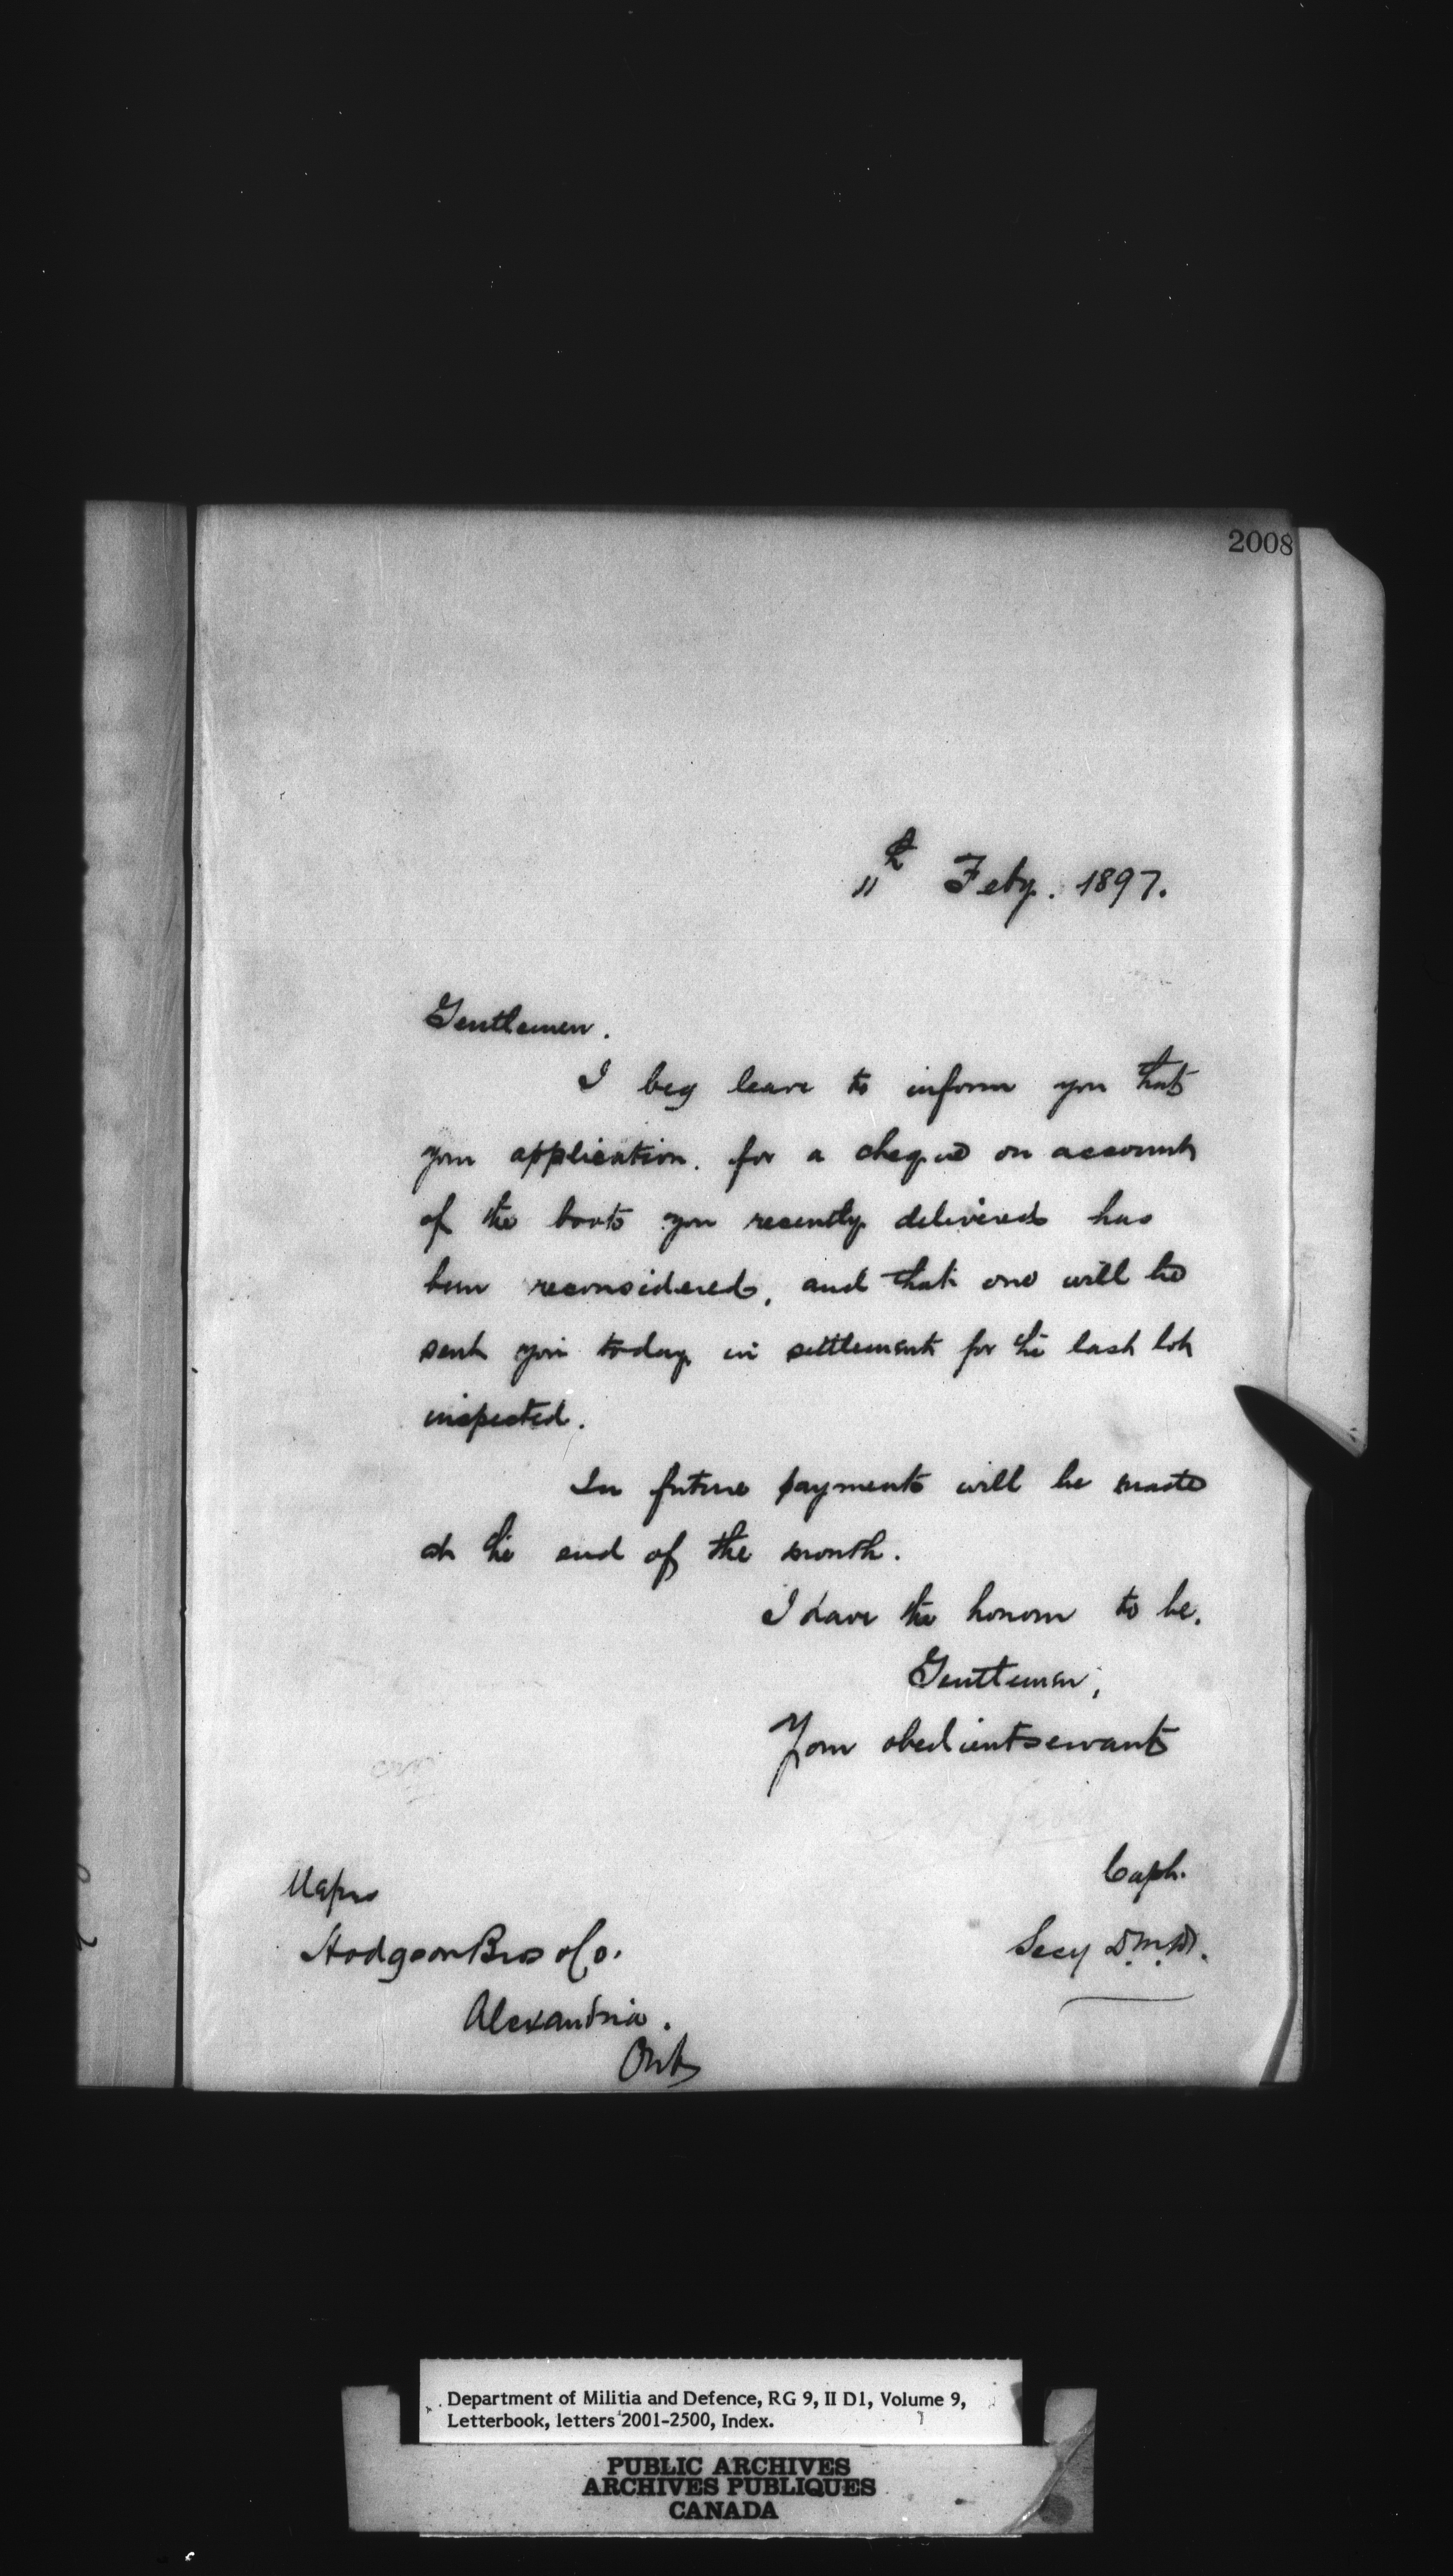 2008
11th Feby. 1897.
Gentlemen.
I beg leave to inform you that
your application. for a cheque on account
of the boots you recently delivered has
been reconsidered, and that one will be
sent you today in settlement for the last lot
inspected.
In future payments will be made
at the end of the month.
I have the honour to be,
Gentlemen,
Your obedient servant
Capt.
Messrs
Secy D.M.D.
Hodgson Bros & Co.
Alexandria.
Ont
Department of Militia and Defence, RG 9, II D1, Volume 9,
Letterbook, letters 2001-2500, Index.
PUBLIC ARCHIVES
ARCHIVES PUBLIQUES
CANADA